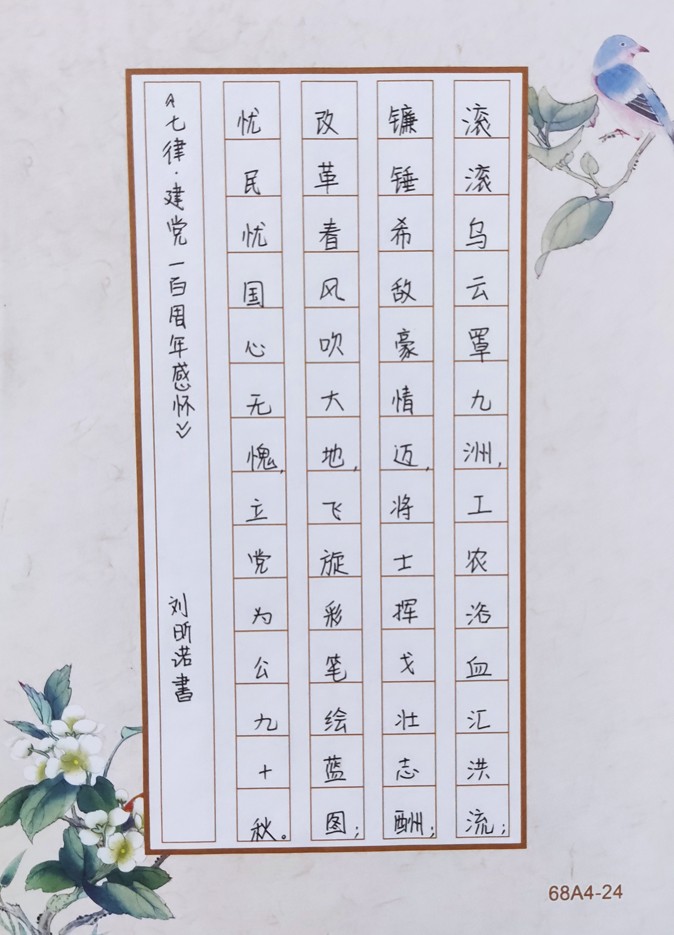 滚滚乌云罩九洲,工农浴血汇洪流;
镰锤希敌豪情迈,将士挥戈壮志酬;
改革春风吹大地,飞旋彩笔绘蓝图;
忧民忧国心无愧,立党为公九十秋。
《七律·建党一百周年感怀》 刘昕诺書
68A4-24